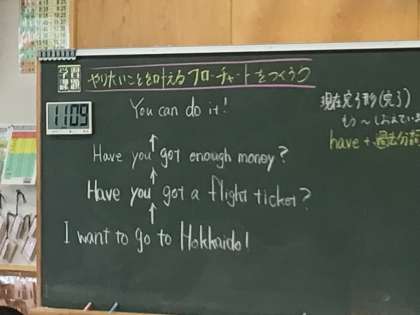 学習課題
やりたいことを叶えるフローチャートをつくろう
11:09
You can do it!
Have you got enough money?
Have you got a flight ticket?
I want to go to Hokkaido!
現在完了形(完了)
もう～し
have + 過去分詞